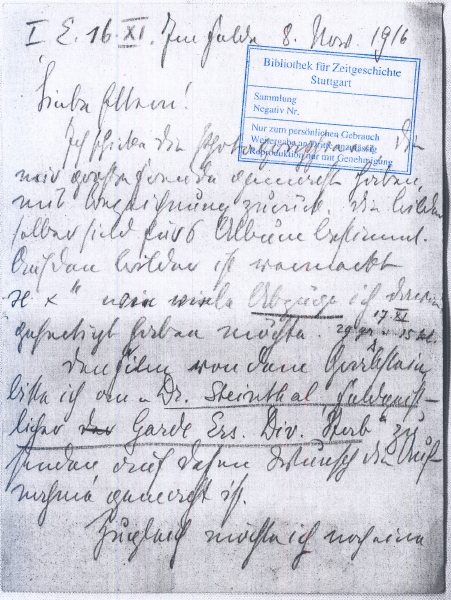 I. E. 16. XI. Im Felde 8. Nov. 1916
Bibliothek für Zeitgeschichte
Stuttgart
Sammlung
Negativ Nr.
Nur zum persönlichen Gebrauch
Weitergabe an Dritte unzulässig
Reproduktion nur mit Genehmigung
Liebe Eltern!
Ich schicke die die
mir große Freude gemacht haben,
mit Bezeichnung zurück. Die Bilder
selber sind fürs Album bestimmt.
Auf den Bildern ist vermerkt
" x " wie viele Abzüge ich davon
gefertigt haben möchte. 17. XI.
Den Film von dem Grabstein
bitte ich an „Dr. Steinthal Feldgeist-
licher der Garde Ers. Div. Herb" zu
senden auf dessen Wunsch die Auf-
nahme gemacht ist.
Zugleich möchte ich noch eine